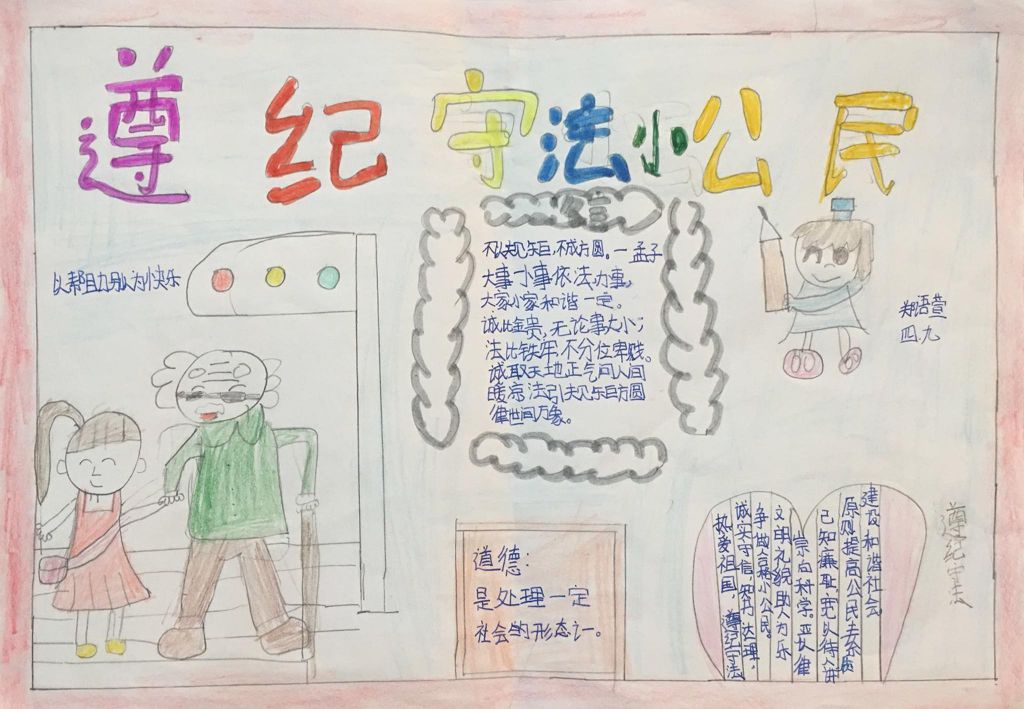 遵纪守法小公民
以帮助别人为快乐
名言
不以规矩,不成方圆。—孟子
大事小事依法办事,
大家小家和谐一定。
诚比金贵,无论事大小;
法比铁牢,不分位卑贱。
诚取天地正气问人间
暖凉法引规矩方圆
律世间万象。
郑语萱
四.九
道德:
是处理一定
社会的形态之一。
建设和谐社会
原则提高公民去素质
己知廉耻宽以待人讲
崇尚科学。严于律
文明礼貌助人为乐
争做合格小公民。
诚实守信,知书达理,
热爱祖国,遵纪守法
遵纪守法